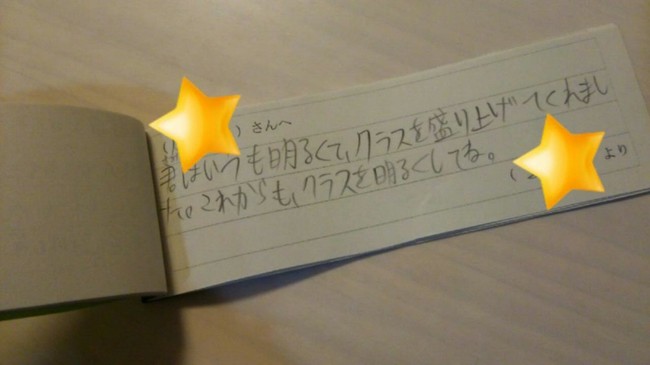 ( ) さんへ
君はいつも明るくて、クラスを盛り上げてくれまし
た。これからも、クラスを明るくしてね。
( より